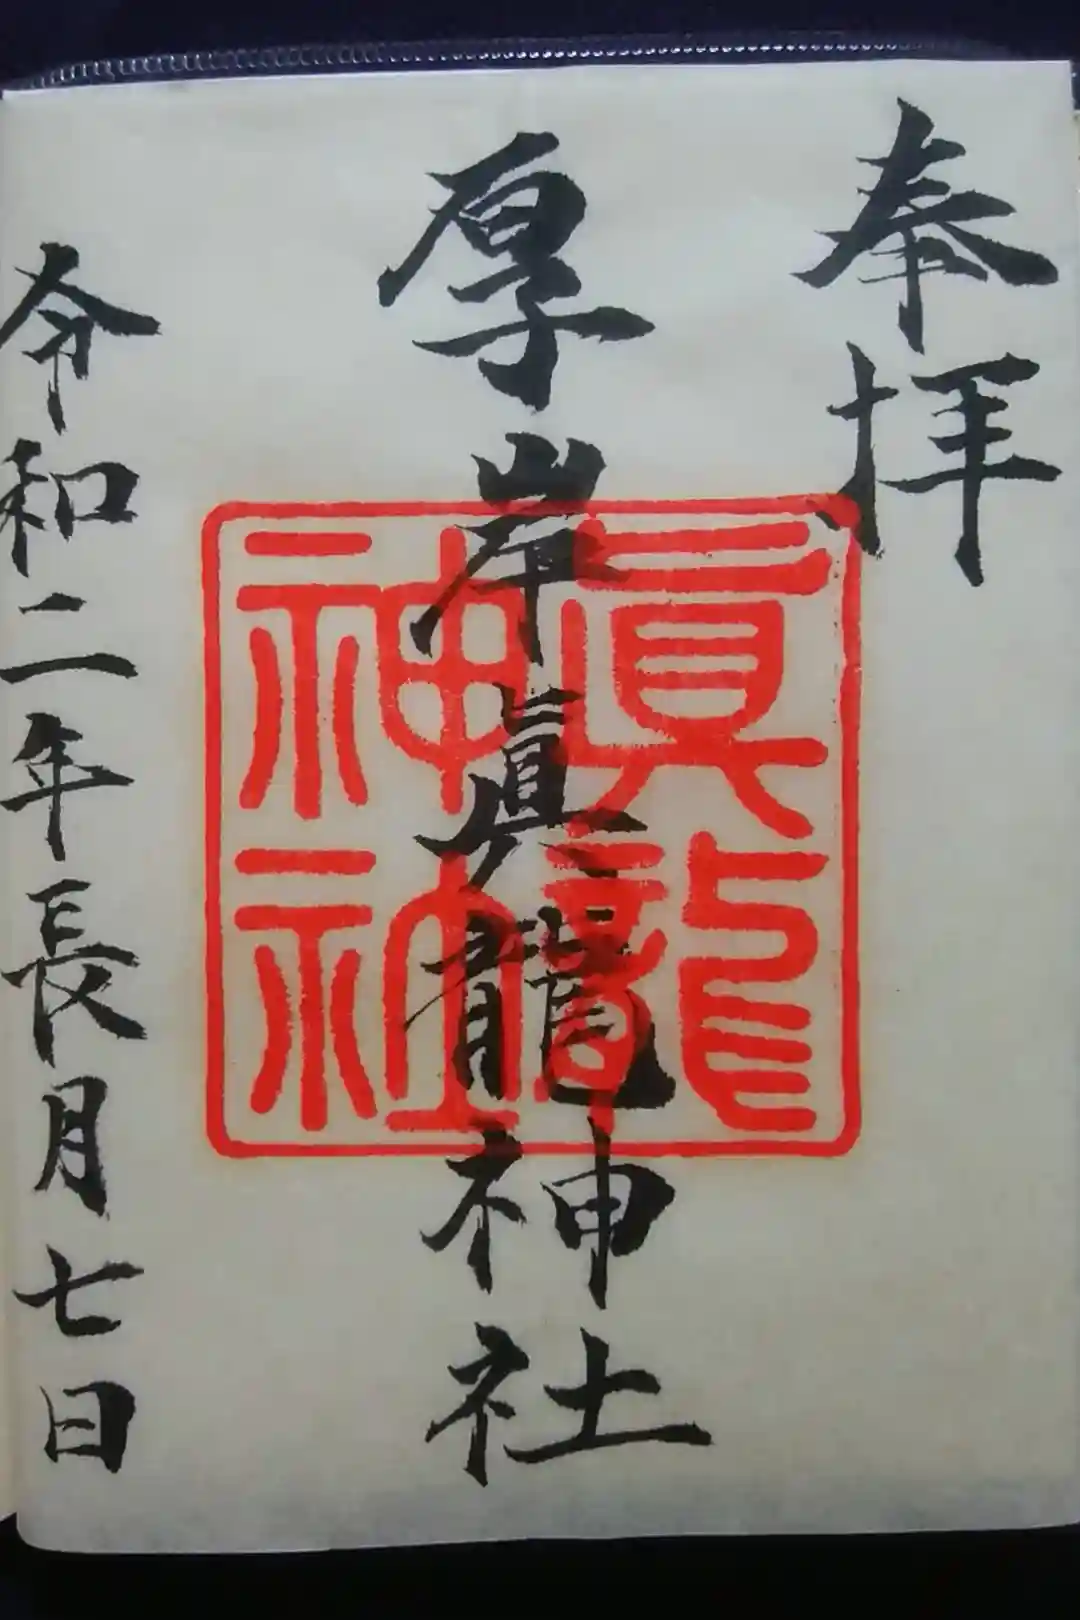 奉拝
厚岸眞龍神社
眞龍
神社
令和二年長月七日